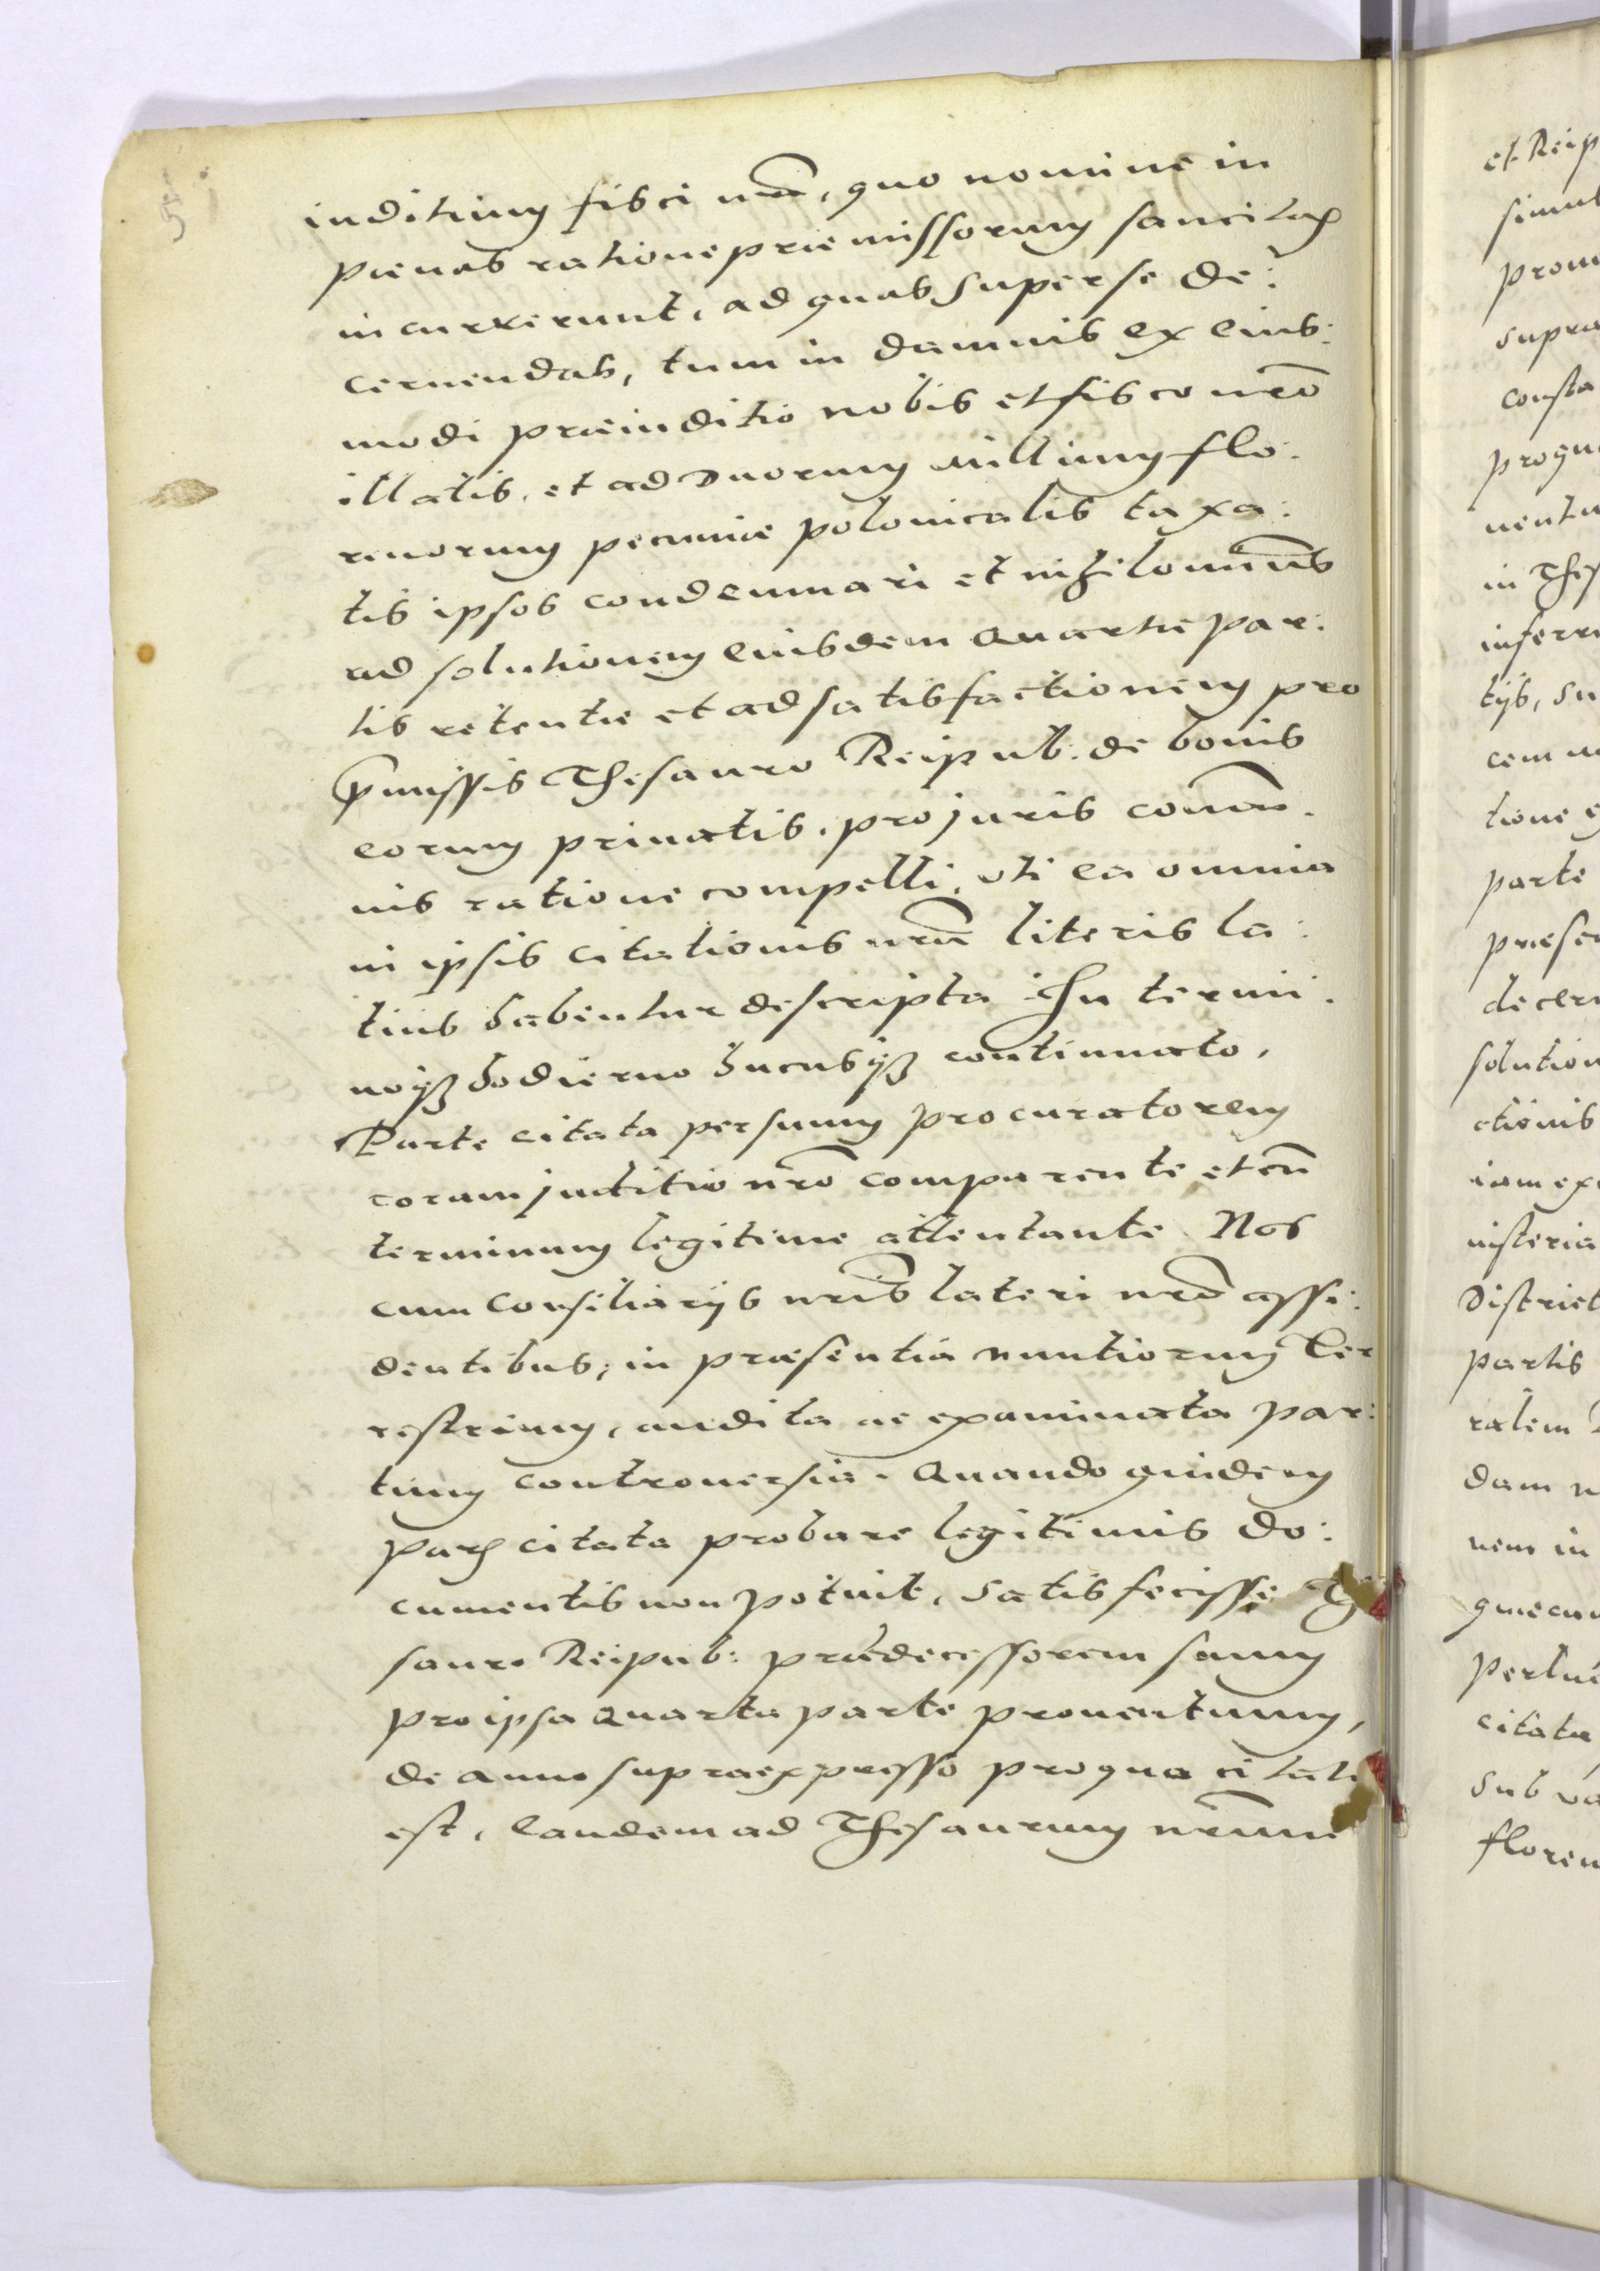 juditium fisci nrã, quo nomine in
pœnas ratione præmissorum sancitas
incurrerunt, ad quas super se de:
cernendas, tum in damnis ex eius:
modi præjuditio nobis et fisco nrõ
illatis, et ad duorum millium flo:
renorum pecuniæ polonicalis taxa:
tis ipsos condemnari et nihilominus
ad solutionem eiusdem Quartæ par:
tis retentæ et ad satisfactionem pro
p̃missis Thesauro Reipub: de bonis
eorum privatis, pro juris comu:
nis ratione compelli, uti ea omnia
in ipsis citationis nrãe literis la:
tius habentur descripta. In termi:
noq3 hodierno hucusq3 continuato,
Parte citata per suum procuratorem
coram juditio nrõ comparente et eũ
terminum legitime attentante. Nos
cum Consiliarijs nrĩs lateri nrõ assi:
dentibus, in præsentia nuntiorum Ter
restrium, audita ac examinata par:
tium controversia. Quando quidem
pars citata probare legitimis do:
cumentis non potuit, satisfecisse Th
sauro Reipub: prædecessorem suum
pro ipsa quarta parte proventuum,
de anno supraexpresso pro qua citata
est, eandem ad Thesaurum nrũm
et Reip
simul
prove
supra
consta
pro qua
uentu
in Thes
inferre
tijs, su
cem
tione
parte
præse
decer
solution
ctionis
iam ex
nisteria
District
partis
ralem
dam
nem in
quæcun
Pertu
citata
sub va
floren